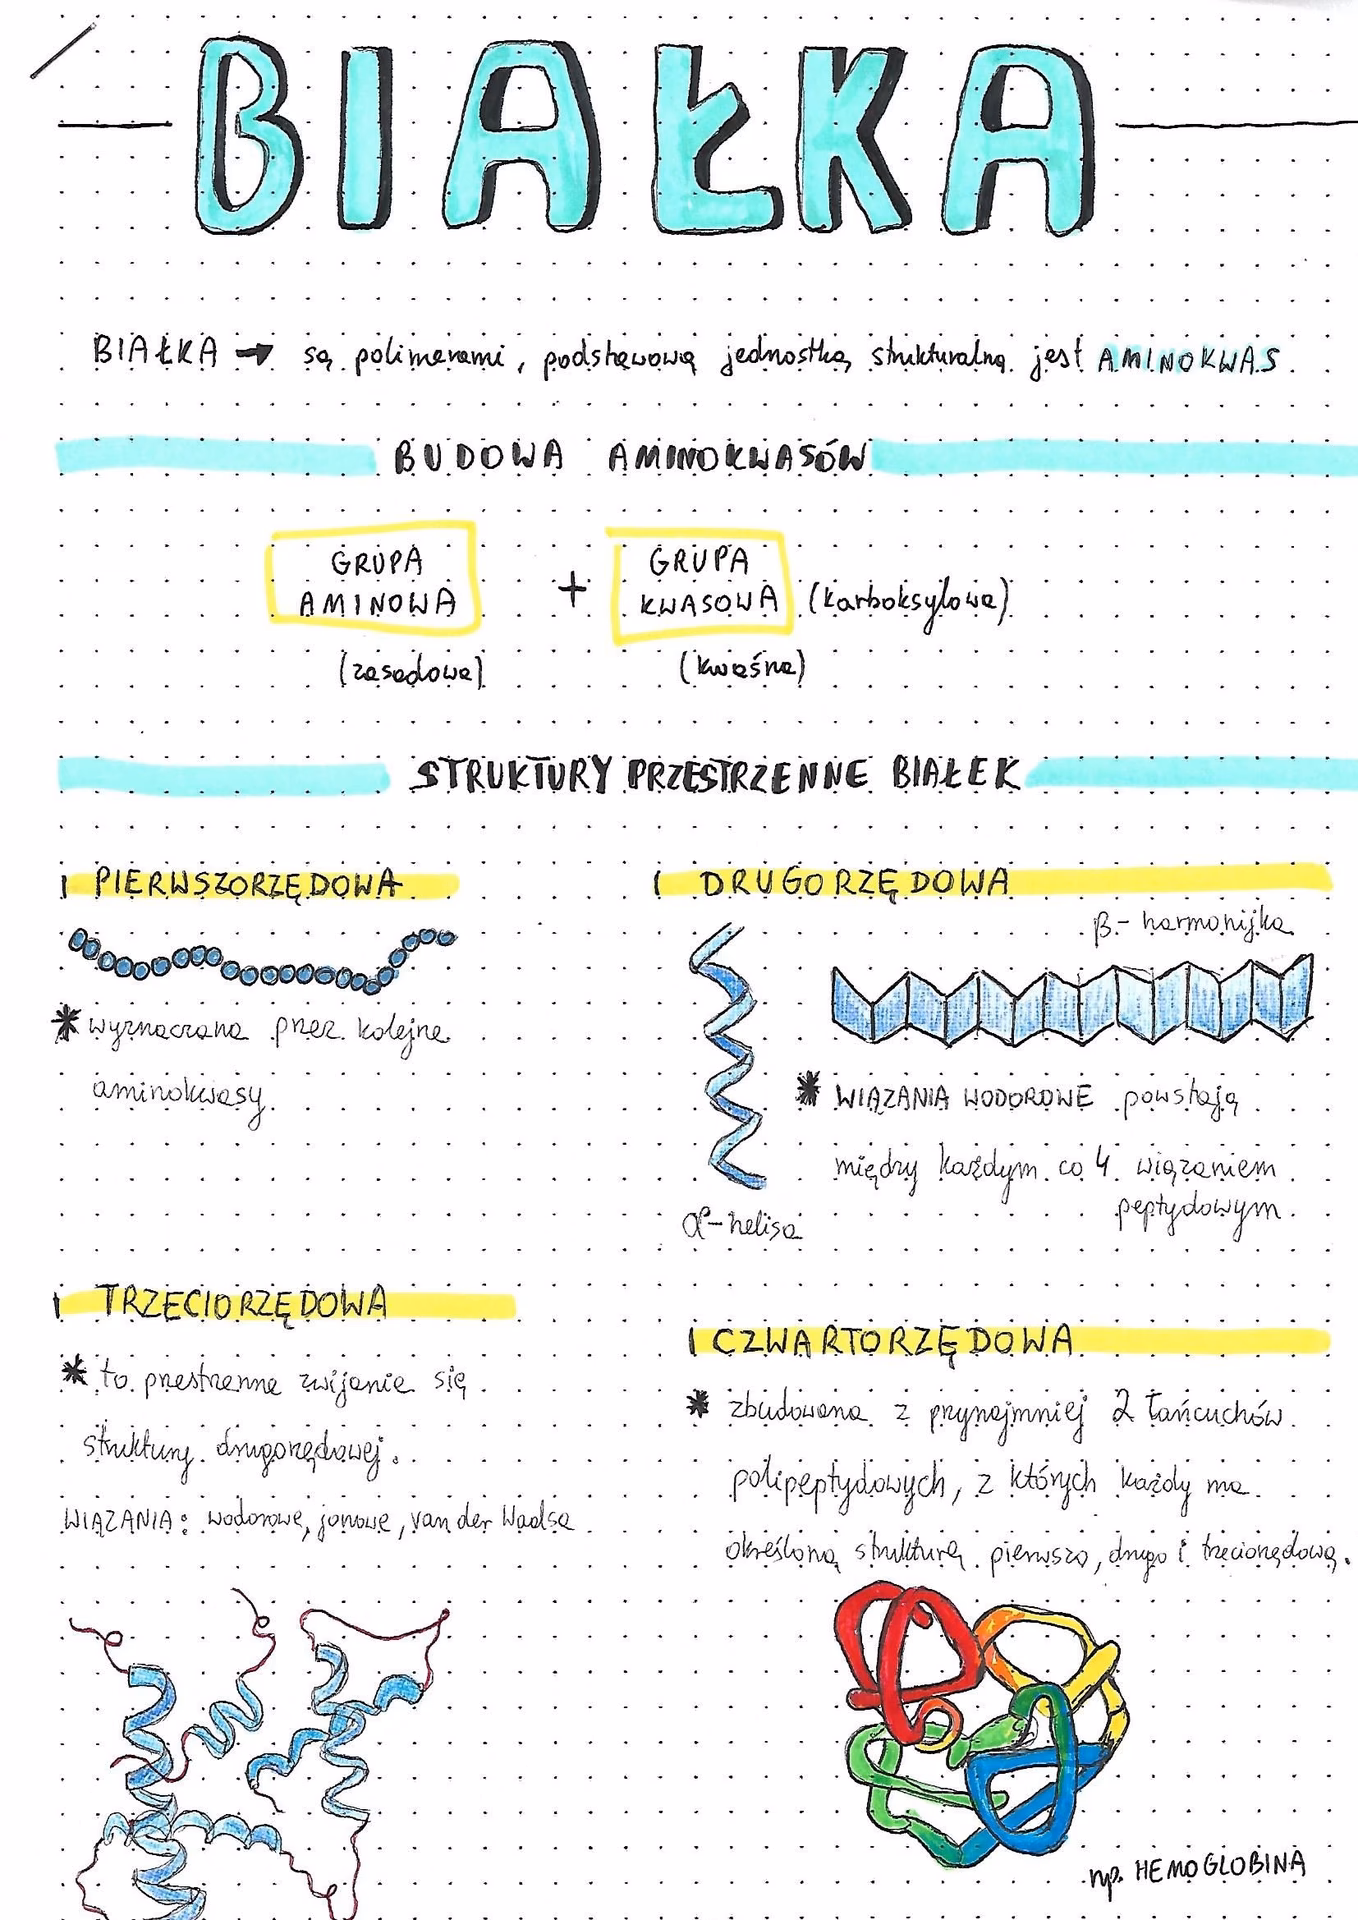 BIAŁKA
BIAŁKA → są polimerami, podstawową jednostką strukturalną jest AMINOKWAS
BUDOWA AMINOKWASÓW
GRUPA
AMINOWA
(zasadowa)
+
GRUPA
KWASOWA (karboksylowa)
(kwaśna)
STRUKTURY PRZESTRZENNE BIAŁEK
PIERWSZORZĘDOWA
* wyznaczana przez kolejne
aminokwasy
DRUGORZĘDOWA
β - harmonijka
* WIĄZANIA WODOROWE powstają
między każdym co 4 wiązaniem
peptydowym
α - helisa
TRZECIORZĘDOWA
* to przestrzenne zwijanie się
struktury drugorzędowej.
WIĄZANIA: wodorowe, jonowe, van der Waalsa
CZWARTORZĘDOWA
* zbudowana z przynajmniej 2 łańcuchów
polipeptydowych, z których każdy ma
określoną strukturę pierwszo, drugo i trzeciorzędową.
np. HEMOGLOBINA